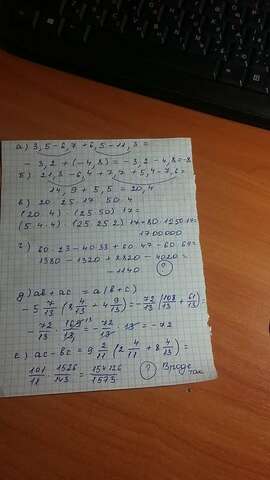 а) 3,5-6,7+6,5-11,3=
-3,2+(-4,8)=-3,2-4,8=-8
б) 21,3-6,4+7,7+5,4-7,6=
14,9+5,5=20,4
в) 20·25·17·50·4
(20·4)·(25·50)·17=
(5·4·4)·(25·25·2)·17=80·1250·17=
1700000
г) 60·23-40·33+60·47-60·67=
1380-1320+2820-4020=
-1140 ?
д) ab+ac=a(b+c)
-5 7/13 (8 4/13+4 9/13)=-72/13 (108/13+61/13)=
-72/13·169/13=-72/13·13=-72
е) ac-bc=9 2/11 (2 4/11+8 4/13)=
101/11·1526/143=154126/1573 ? Вроде
так